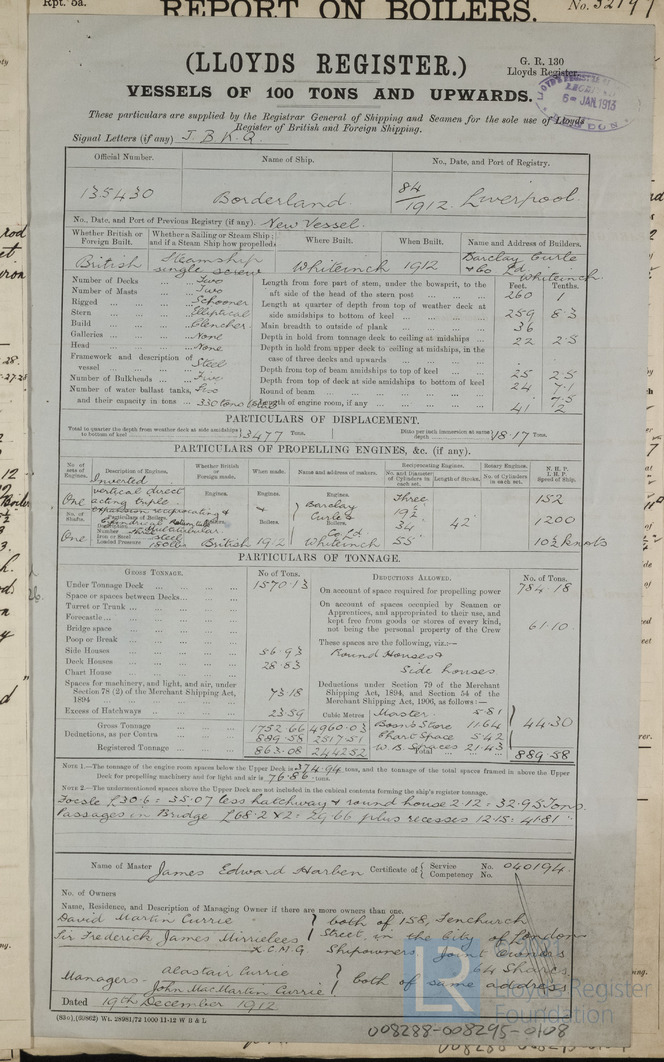 Rpt. 5a.
REPORT ON BOILERS.
No. 32197
(LLOYDS REGISTER.)
G. R. 130
Lloyds Register
VESSELS OF 100 TONS AND UPWARDS.
6 JAN. 1913
These particulars are supplied by the Registrar General of Shipping and Seamen for the sole use of Lloyds
Register of British and Foreign Shipping.
Signal Letters (if any) J. B. K. Q.
Official Number. Name of Ship. No., Date, and Port of Registry.
135430 Borderland 84/1912. Liverpool
No., Date, and Port of Previous Registry (if any). New Vessel.
Whether British or Foreign Built. Whether a Sailing or Steam Ship; and if a Steam Ship how propelled Where Built. When Built. Name and Address of Builders.
British Steamship single screw Whiteinch 1912 Barclay Curle & Co Ld Whiteinch.
Number of Decks ... ... Two
Number of Masts ... ... Two
Rigged ... ... Schooner
Stern ... ... Elliptical
Build ... ... Clencher
Galleries ... ... None
Head ... ... None
Framework and description of vessel ... ... Steel
Number of Bulkheads ... Five
Number of water ballast tanks, Five
and their capacity in tons ... 330 tons
Feet. Tenths.
Length from fore part of stem, under the bowsprit, to the aft side of the head of the stern post ... 260 1
Length at quarter of depth from top of weather deck at side amidships to bottom of keel ... 259 8.3
Main breadth to outside of plank ... 36 .
Depth in hold from tonnage deck to ceiling at midships ... 22 2.5
Depth in hold from upper deck to ceiling at midships, in the case of three decks and upwards ... . .
Depth from top of beam amidships to top of keel ... 25 2.5
Depth from top of deck at side amidships to bottom of keel 24 7.1
Round of beam ... . 7.5
Length of engine room, if any ... 41 .2
PARTICULARS OF DISPLACEMENT.
Total to quarter the depth from weather deck at side amidships to bottom of keel 3477 Tons. Ditto per inch immersion at same depth 18.17 Tons.
PARTICULARS OF PROPELLING ENGINES, &c. (if any).
No. of sets of Engines. Description of Engines. Whether British or Foreign made. When made. Name and address of makers. Reciprocating Engines. Rotary Engines. N. H. P. I. H. P. Speed of Ship.
No. and Diameter of Cylinders in each set. Length of Stroke. No. of Cylinders in each set.
One Inverted vertical direct acting triple expansion reciprocating
Engines. Engines. Engines.
No. of Shafts. Particulars of Boilers. Boilers. Boilers. Boilers.
One Description Cylindrical Multitubular
Number
Iron or Steel Steel
Loaded Pressure
British 1912 Barclay Curle & Co Ld Whiteinch
Three 19½ 34 55 42"
152
1200
10½ knots
PARTICULARS OF TONNAGE.
GROSS TONNAGE. No. of Tons.
Under Tonnage Deck ... 1570.13
Space or spaces between Decks ...
Turret or Trunk ...
Forecastle ...
Bridge space ...
Poop or Break ...
Side Houses ... 56.93
Deck Houses ... 28.83
Chart House ...
Spaces for machinery, and light, and air, under Section 78 (2) of the Merchant Shipping Act, 1894 ... 73.18
Excess of Hatchways ... 23.59
Cubic Metres
Gross Tonnage ... 1752.66 4960.03
Deductions, as per Contra ... 889.58 2517.51
Registered Tonnage ... 863.08 2442.52
DEDUCTIONS ALLOWED. No. of Tons.
On account of space required for propelling power 784.18
On account of spaces occupied by Seamen or Apprentices, and appropriated to their use, and kept free from goods or stores of every kind, not being the personal property of the Crew 61.10
These spaces are the following, viz.:—
Round Houses &
Side houses
Deductions under Section 79 of the Merchant Shipping Act, 1894, and Section 54 of the Merchant Shipping Act, 1906, as follows:—
Master 5.81
Boats'n Store 11.64
Chart Space 5.42
W.B. Spaces 21.43
44.30
Total ... 889.58
NOTE 1.—The tonnage of the engine room spaces below the Upper Deck is 374.94 tons, and the tonnage of the total spaces framed in above the Upper
Deck for propelling machinery and for light and air is 76.86 tons.
NOTE 2.—The undermentioned spaces above the Upper Deck are not included in the cubical contents forming the ship's register tonnage.
Focsle £30.6 = 35.07 less hatchway & round house 2.12 = 32.95 Tons.
Passages in Bridge £68.2 x 2 = 29.66 plus recesses 12.15 = 41.81 "
Name of Master James Edward Harben Certificate of Service No. 040194.
Competency No.
No. of Owners
Name, Residence, and Description of Managing Owner if there are more owners than one.
David Martin Currie } both of 158, Fenchurch
Sir Frederick James Mirrielees } Street in the City of London
K.C.M.G Shipowners, Joint Owners
64 Shares
Managers- Alastair Currie
John MacMartin Currie } both of same address
Dated 19th December 1912
(83c), (60862) Wt. 28981/72 1000 11-12 W B & L
LR
Lloyd's Register
Foundation
008288-008295-0108